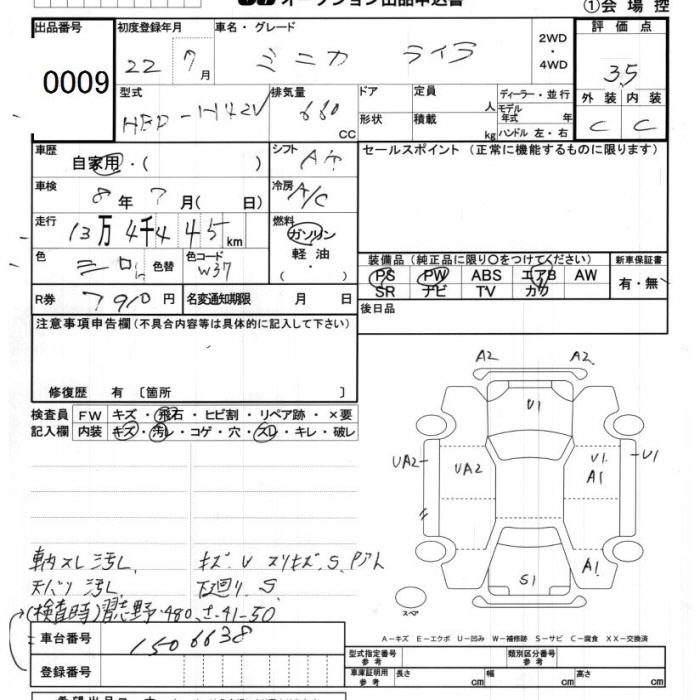 オークション出品申込書
①会場控
出品番号
0009
初度登録年月
22 7月
車名・グレード
ミニカ ライラ
2WD
・
4WD
評価点
3.5
外装 内装
C C
型式
HBD-H42V
排気量
660
CC
ドア
定員
人
形状
積載
kg
ディーラー・並行
モデル年式 年
ハンドル 左・右
車歴
自家用・( )
シフト
車検
8年 7月( 日)
冷房
A/C
走行
13万 4千4 45km
燃料
ガソリン
軽油
( ・ )
色
シロ
色替
色コード
W37
R券
7910円
名変通知期限 月 日
セールスポイント(正常に機能するものに限ります)
装備品(純正品に限り○をつけてください)
PS PW ABS エアB AW
SR ナビ TV カワ
新車保証書
有・無
後日品
注意事項申告欄(不具合内容等は具体的に記入して下さい)
修復歴 有〔箇所 〕
検査員
記入欄
FW キズ・飛石・ヒビ割・リペア跡・×要
内装 キズ・汚レ・コゲ・穴・スレ・キレ・破レ
車内スレ 汚レ
キズ V スリキズ S
天バリ 汚レ
下廻り S
(検査時) 習志野 480 さ 41-50
車台番号
1506638
登録番号
A2 A2
U1
UA2
UA2
U1
A1
U1
A1
S1
スペア
A-キズ E-エクボ U-凹み W-補修跡 S-サビ C-腐食 XX-交換済
型式指定番号
参考
類別区分番号
参考
車庫証明用
参考
長さ cm 幅 cm 高さ cm
希望出品コーナー